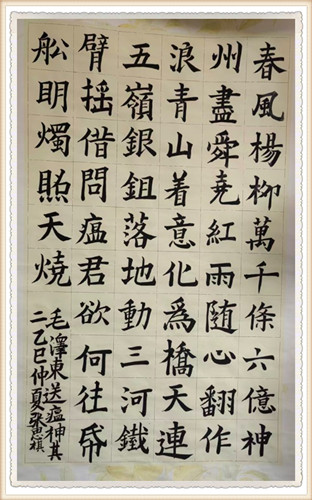 春風楊柳萬千條六億神
州盡舜堯紅雨随心翻作
浪青山着意化爲橋天連
五嶺銀鉏落地動三河鐵
臂摇借問瘟君欲何往帋
舩眀燭照天燒
毛澤東送瘟神其
二乙巳仲夏